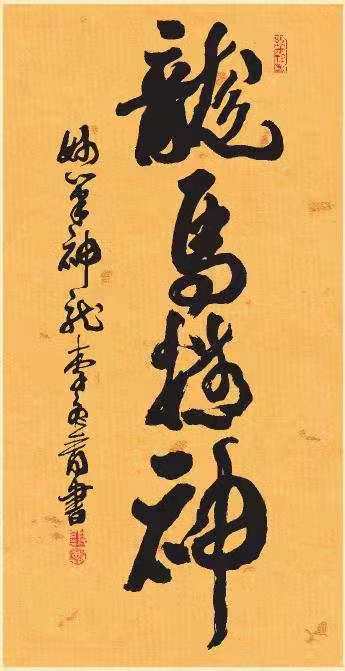 龍馬精神
妙筆神龍李書